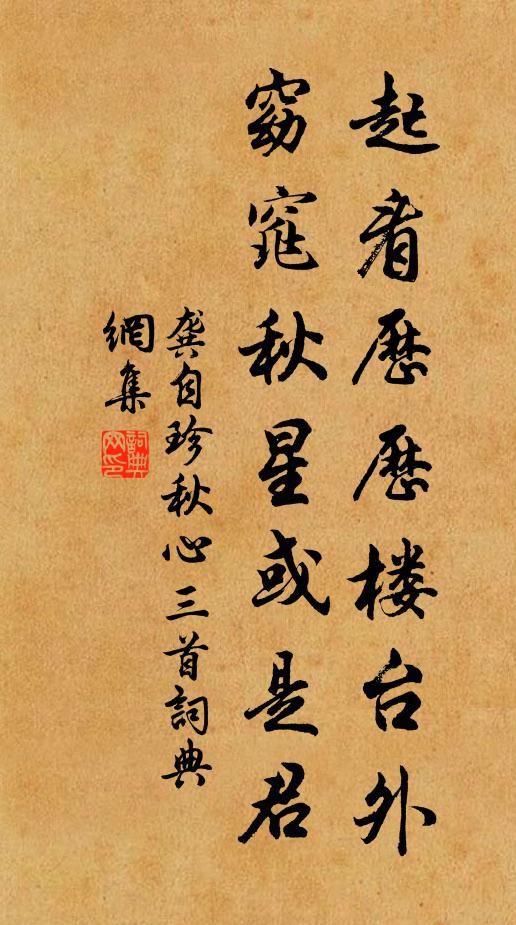 起看历历楼台外
窈窕秋星或是君
龚自珍秋心三首詞典
網集
詞典
网印